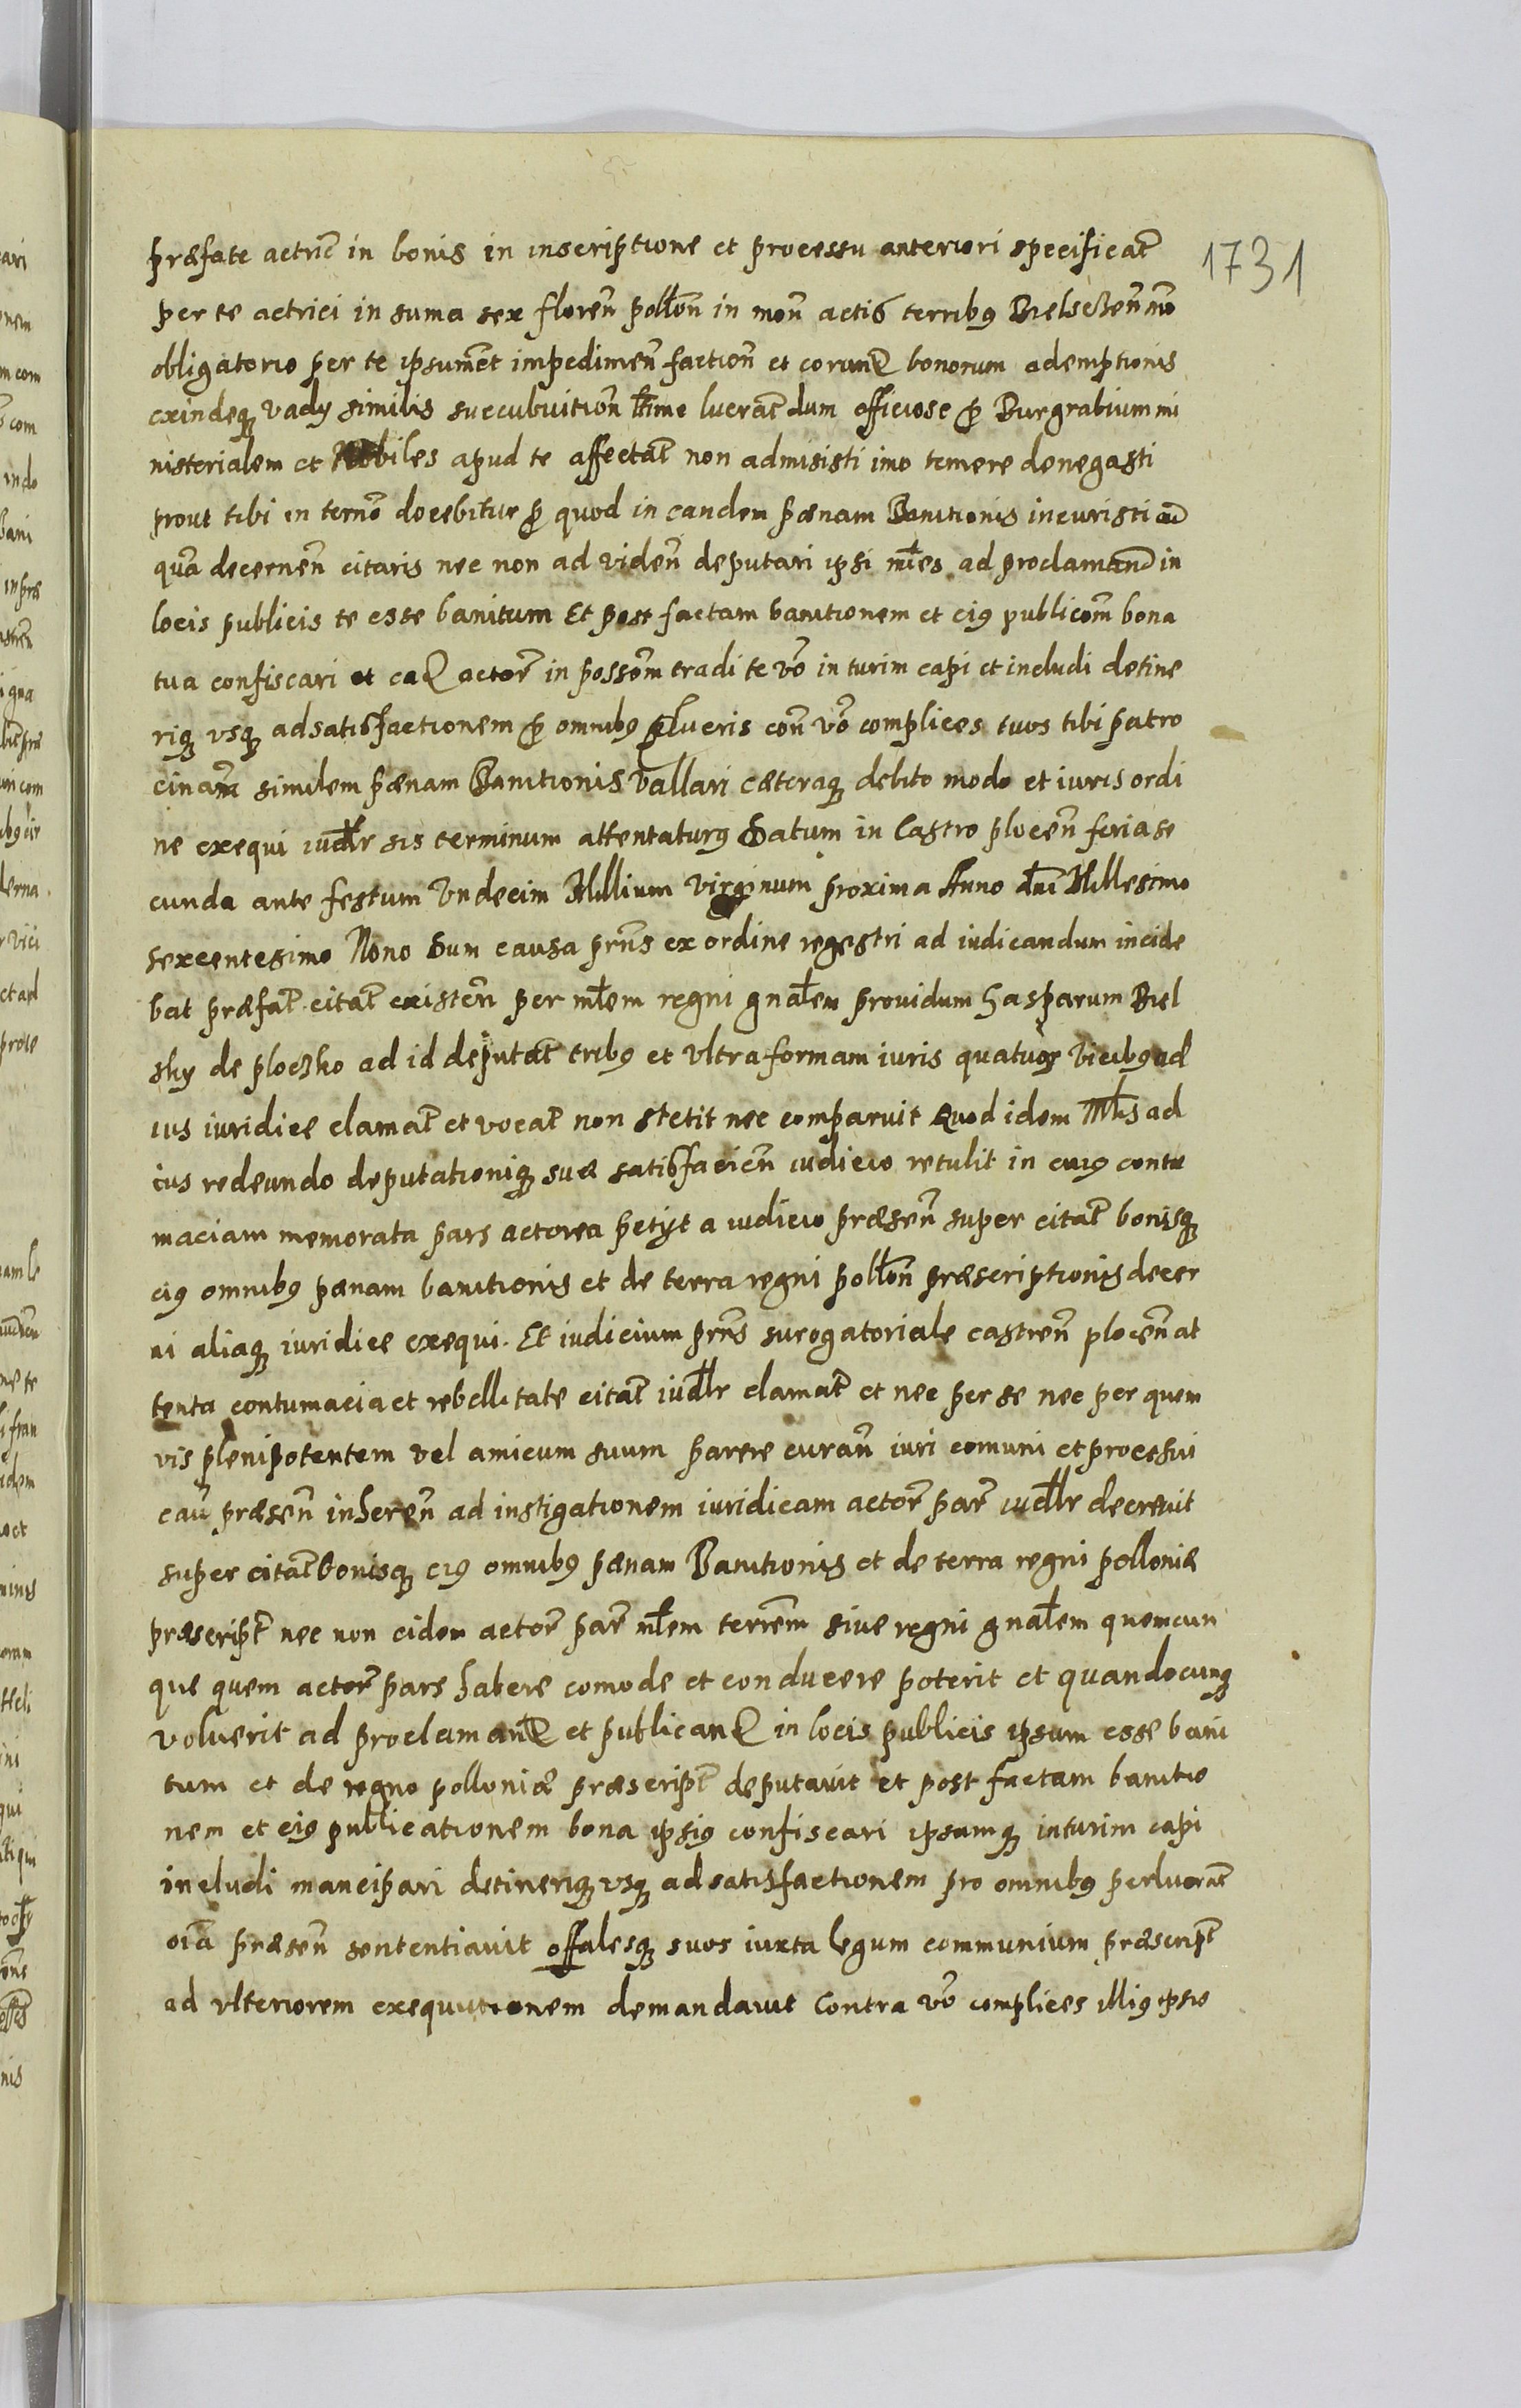 præfate actric̃ in bonis in inscriptione et processu anteriori specificat̃
1731
per te actrici in suma sex floreñ polloñ in moñ actis terribꝯ Bielscens̃ mõ
obligatorio per te ipsum̃et impedimeñ factioñ et eorund̃ bonorum ademptionis
exindeqꝫ vadÿ similis succubuitioñ ltĩme luerat̃ dum officiose ꝑ Burgrabium mi
nisterialem et Nobiles apud te affectat̃ non admisisti imo temere denegasti
prout tibi in termõ docebitur ꝓ quod in eandem pænam Banitionis incuristi ad
quã decerneñ citaris nec non ad videñ deputari ipsi ml̃es ad proclamand̃ in
locis publicis te esse banitum Et post factam banitionem et eiꝯ publicom̃ bona
tua confiscari et ead̃ actor̃ in possom̃ tradi te võ in turim capi et includi detine
riqꝫ vsqꝫ ad satisfactionem ꝓ omnibꝯ ꝑlueris coñ võ complices tuos tibi patro
cinañ similem pænam Banitionis vallari cæteraqꝫ debito modo et iuris ordi
ne exequi iudl̃r sis terminum attentaturꝯ Datum in Castro ploceñ feria se
cunda ante festum Vndecim Millium virginum proxima Anno dñi Millesimo
sexcentesimo Nono Dum causa prñs ex ordine regestri ad iudicandum incide
bat præfat̃ citat̃ existeñ per ml̃em regni gnal̃em prouidum Gasparum Biel
sky de ploczko ad id deputat̃ tribꝯ et vltra formam iuris quatuor vicibꝯ ad
ius iuridice clamat̃ et vocat̃ non stetit nec comparuit Quod idem Ml̃is ad
ius redeundo deputationiqꝫ suæ satisfacieñ iudicio retulit in cuiꝯ contu
maciam memorata pars actorea petijt a iudicio præseñ super citat̃ bonisqꝫ
eiꝯ omnibꝯ pænam banitionis et de terra regni polloñ præscriptionis decer
ni aliaqꝫ iuridice exequi. Et iudicium prñs surogatoriale castreñ ploceñ at
tenta contumacia et rebellitate citat̃ iudl̃r clamat̃ et nec per se nec per quem
vis plenipotentem vel amicum suum parere curañ iuri comuni et processui
cãu præseñ inhereñ ad instigationem iuridicam actor̃ par̃ iudl̃r decreuit
super citat̃ bonisqꝫ eiꝯ omnibꝯ pænam Banitionis et de terra regni polloniæ
præscript̃ nec non eidem actor̃ par̃ ml̃em terrem̃ siue regni gnal̃em quemcun
que quem actor̃ pars habere comode et conducere poterit et quandocunqꝫ
voluerit ad proclamand̃ et publicand̃ in locis publicis ipsum esse bani
tum et de regno polloniæ præscript̃ deputauit et post factam banitio
nem et eiꝯ publicationem bona ipsiꝯ confiscari ipsumqꝫ in turim capi
includi mancipari detineriqꝫ vsqꝫ ad satisfactionem pro omnibꝯ perluerat̃
oĩa præseñ sententiauit offalesqꝫ suos iuxta legum communium præscript̃
ad vlteriorem exequutionem demandauit Contra võ complices illiꝯ ipso